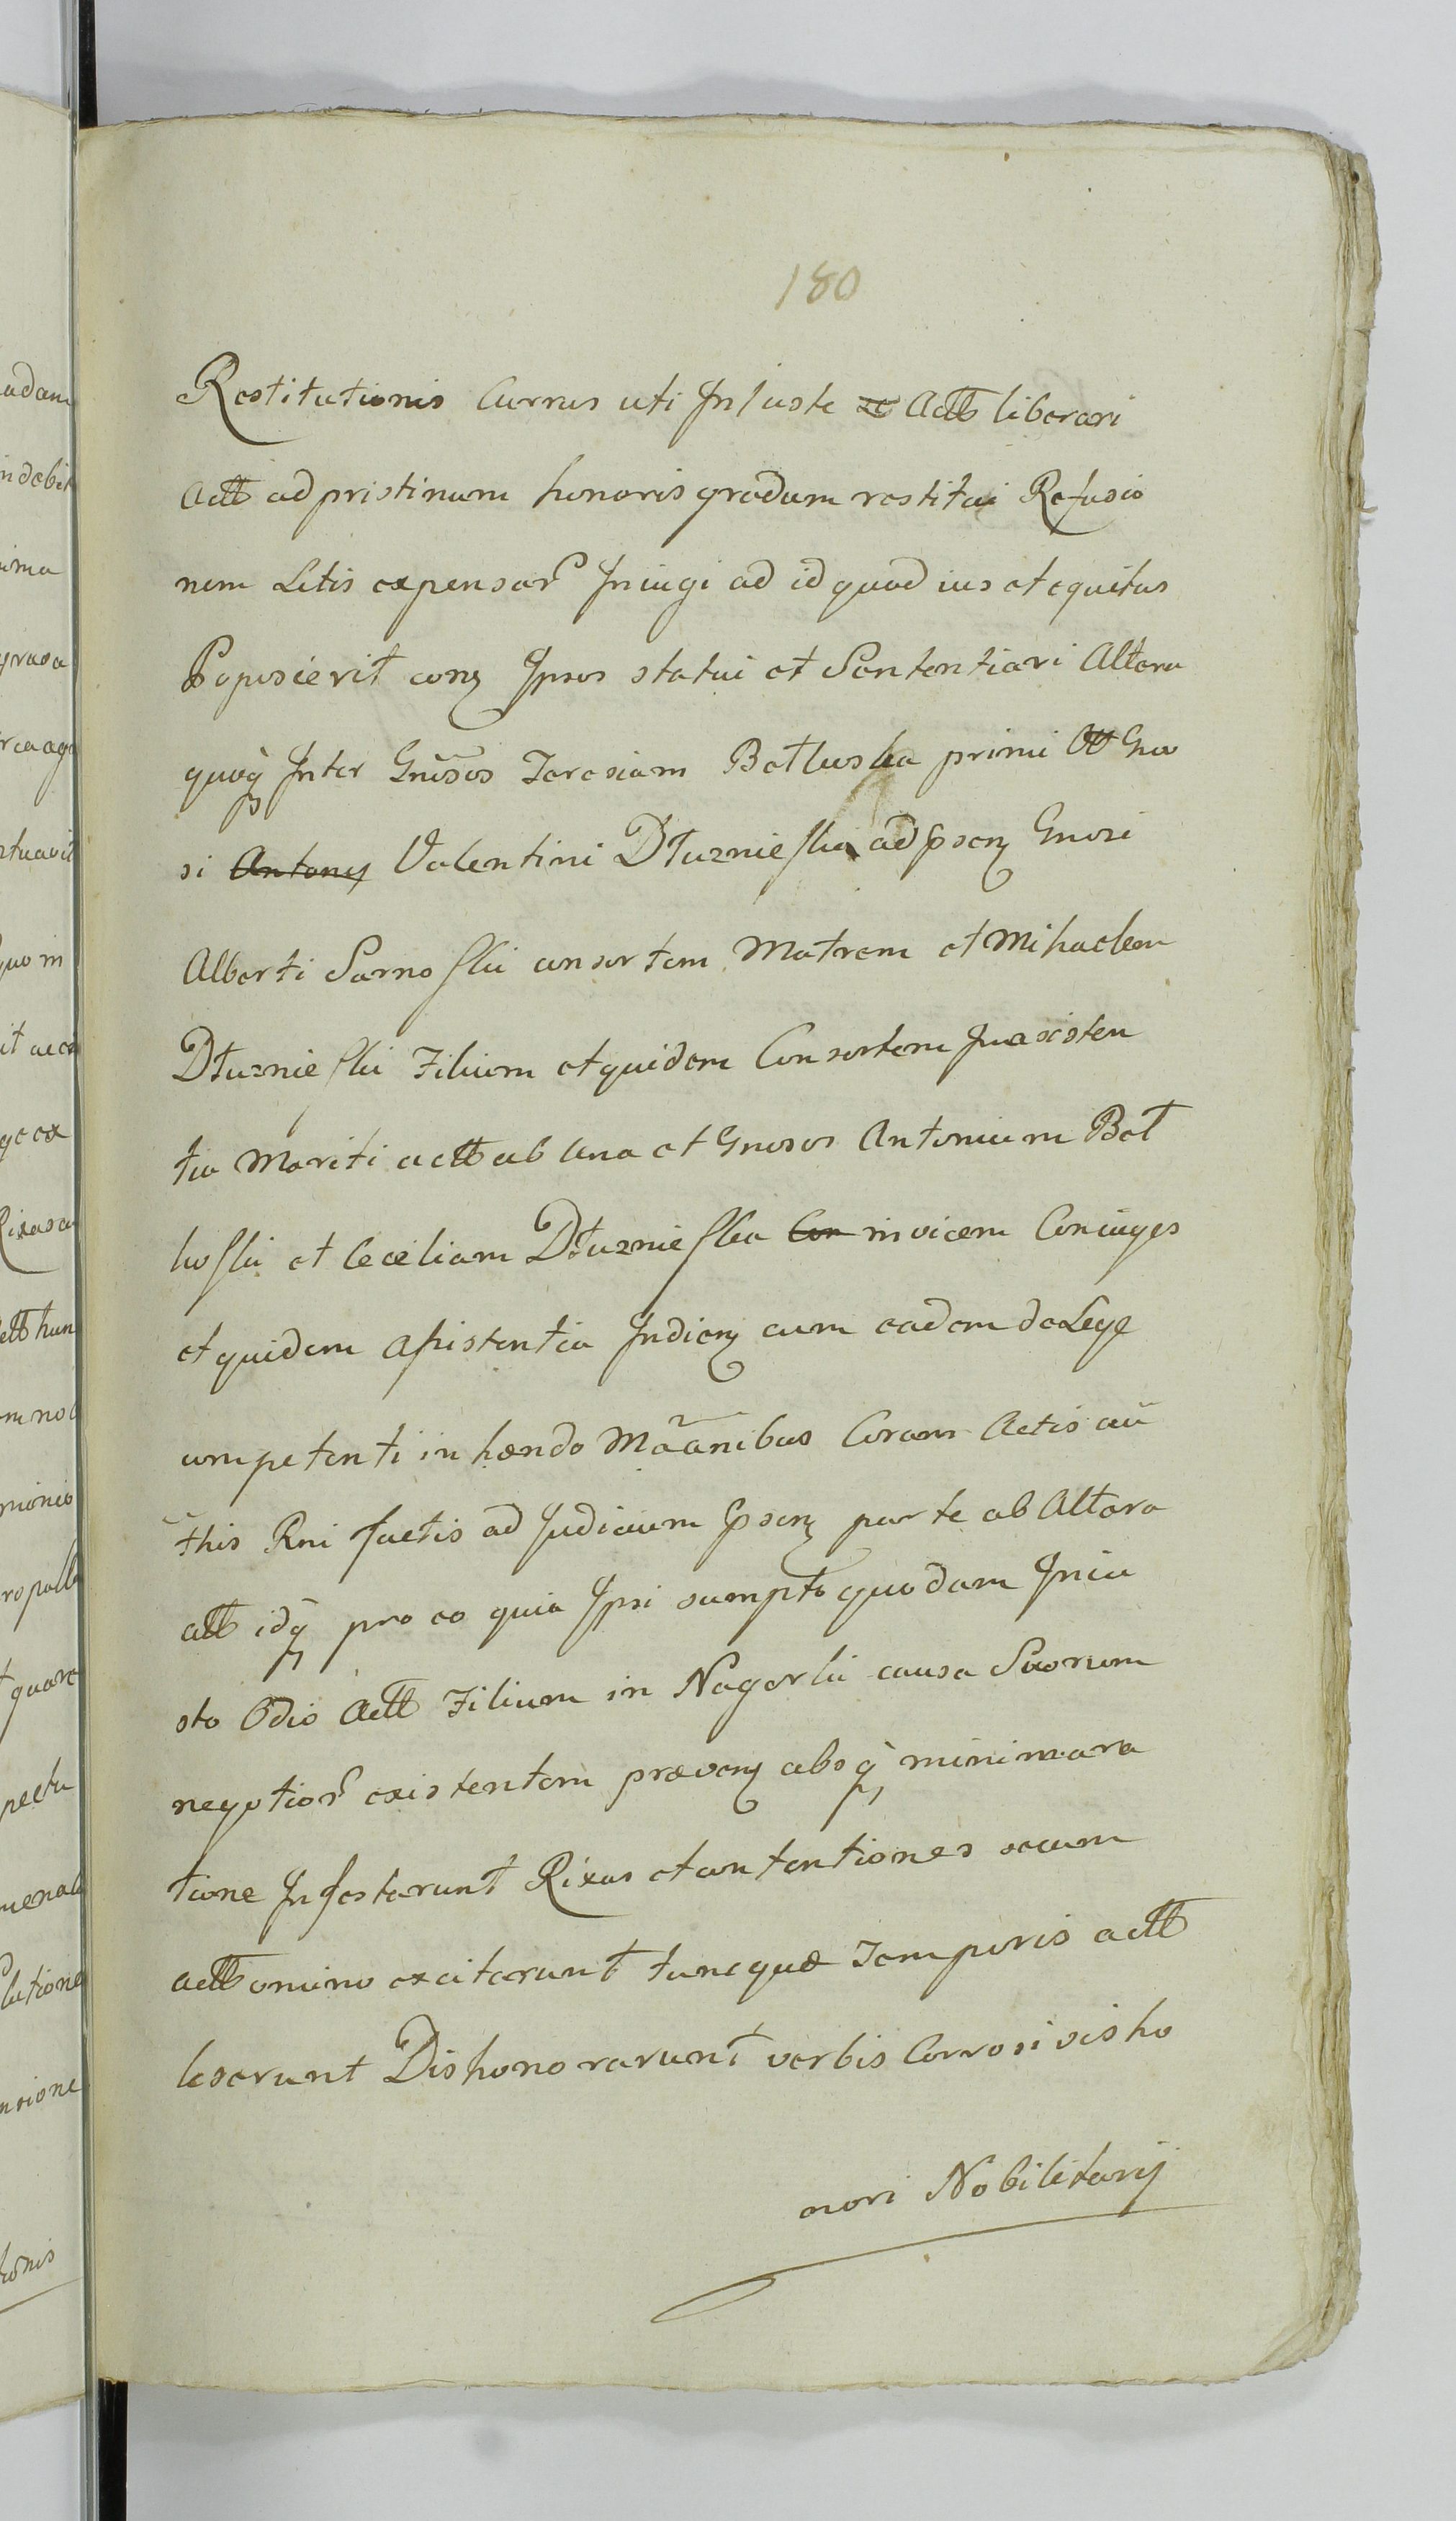 180
Restitutionis Currus uti Injuste Actt liberari
Actt ad pristinum honoris gradum restitui Refusio
nem Litis expensar Iniugi ad id quod ius et equitas
Poposcierit conz Ipsos statui et Sententiari Altera
quoq Inter Gnrosos Teresiam Betluska primi Gno
si Antony Valentini Dłuznieska ad Gnosi
Alberti Sarnoski consortem Matrem et Mihaelem
Dłuznieski Filium et quidem Consortem
tia Mariti actt ab una et Gnosos Antonium Bet
koski et Ceceliam Dłuznieska Con invicem Coniuges
et quidem Assistentia cum eadem de Lege
competenti inhaendo Coram Actis au
this Rni factis ad Judicium parte ab Altera
att idq pro eo quia Ipsi sumpto quodam Iniu
sto Odio Actt Filium in Nagorki causa Suorum
negotior existentem absq minima ra
tione Infestarunt Rixas et contentiones secum
actt omino excitarunt tuncquae Temporis actt
leserunt Dishonorarunt verbis Corrosivis ho
nori Nobilitarij